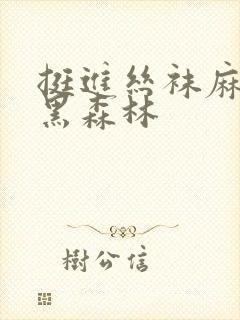 挺進絲袜麻
黑森林
樹公信